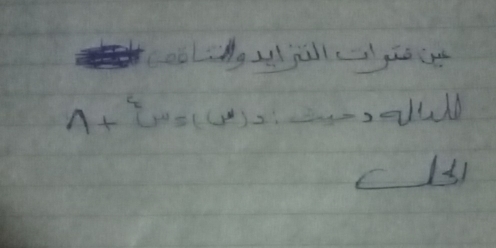 عين فترات التزايد والتناقص
للداله د حيث : د(س) = س٤ + ٨
الحل